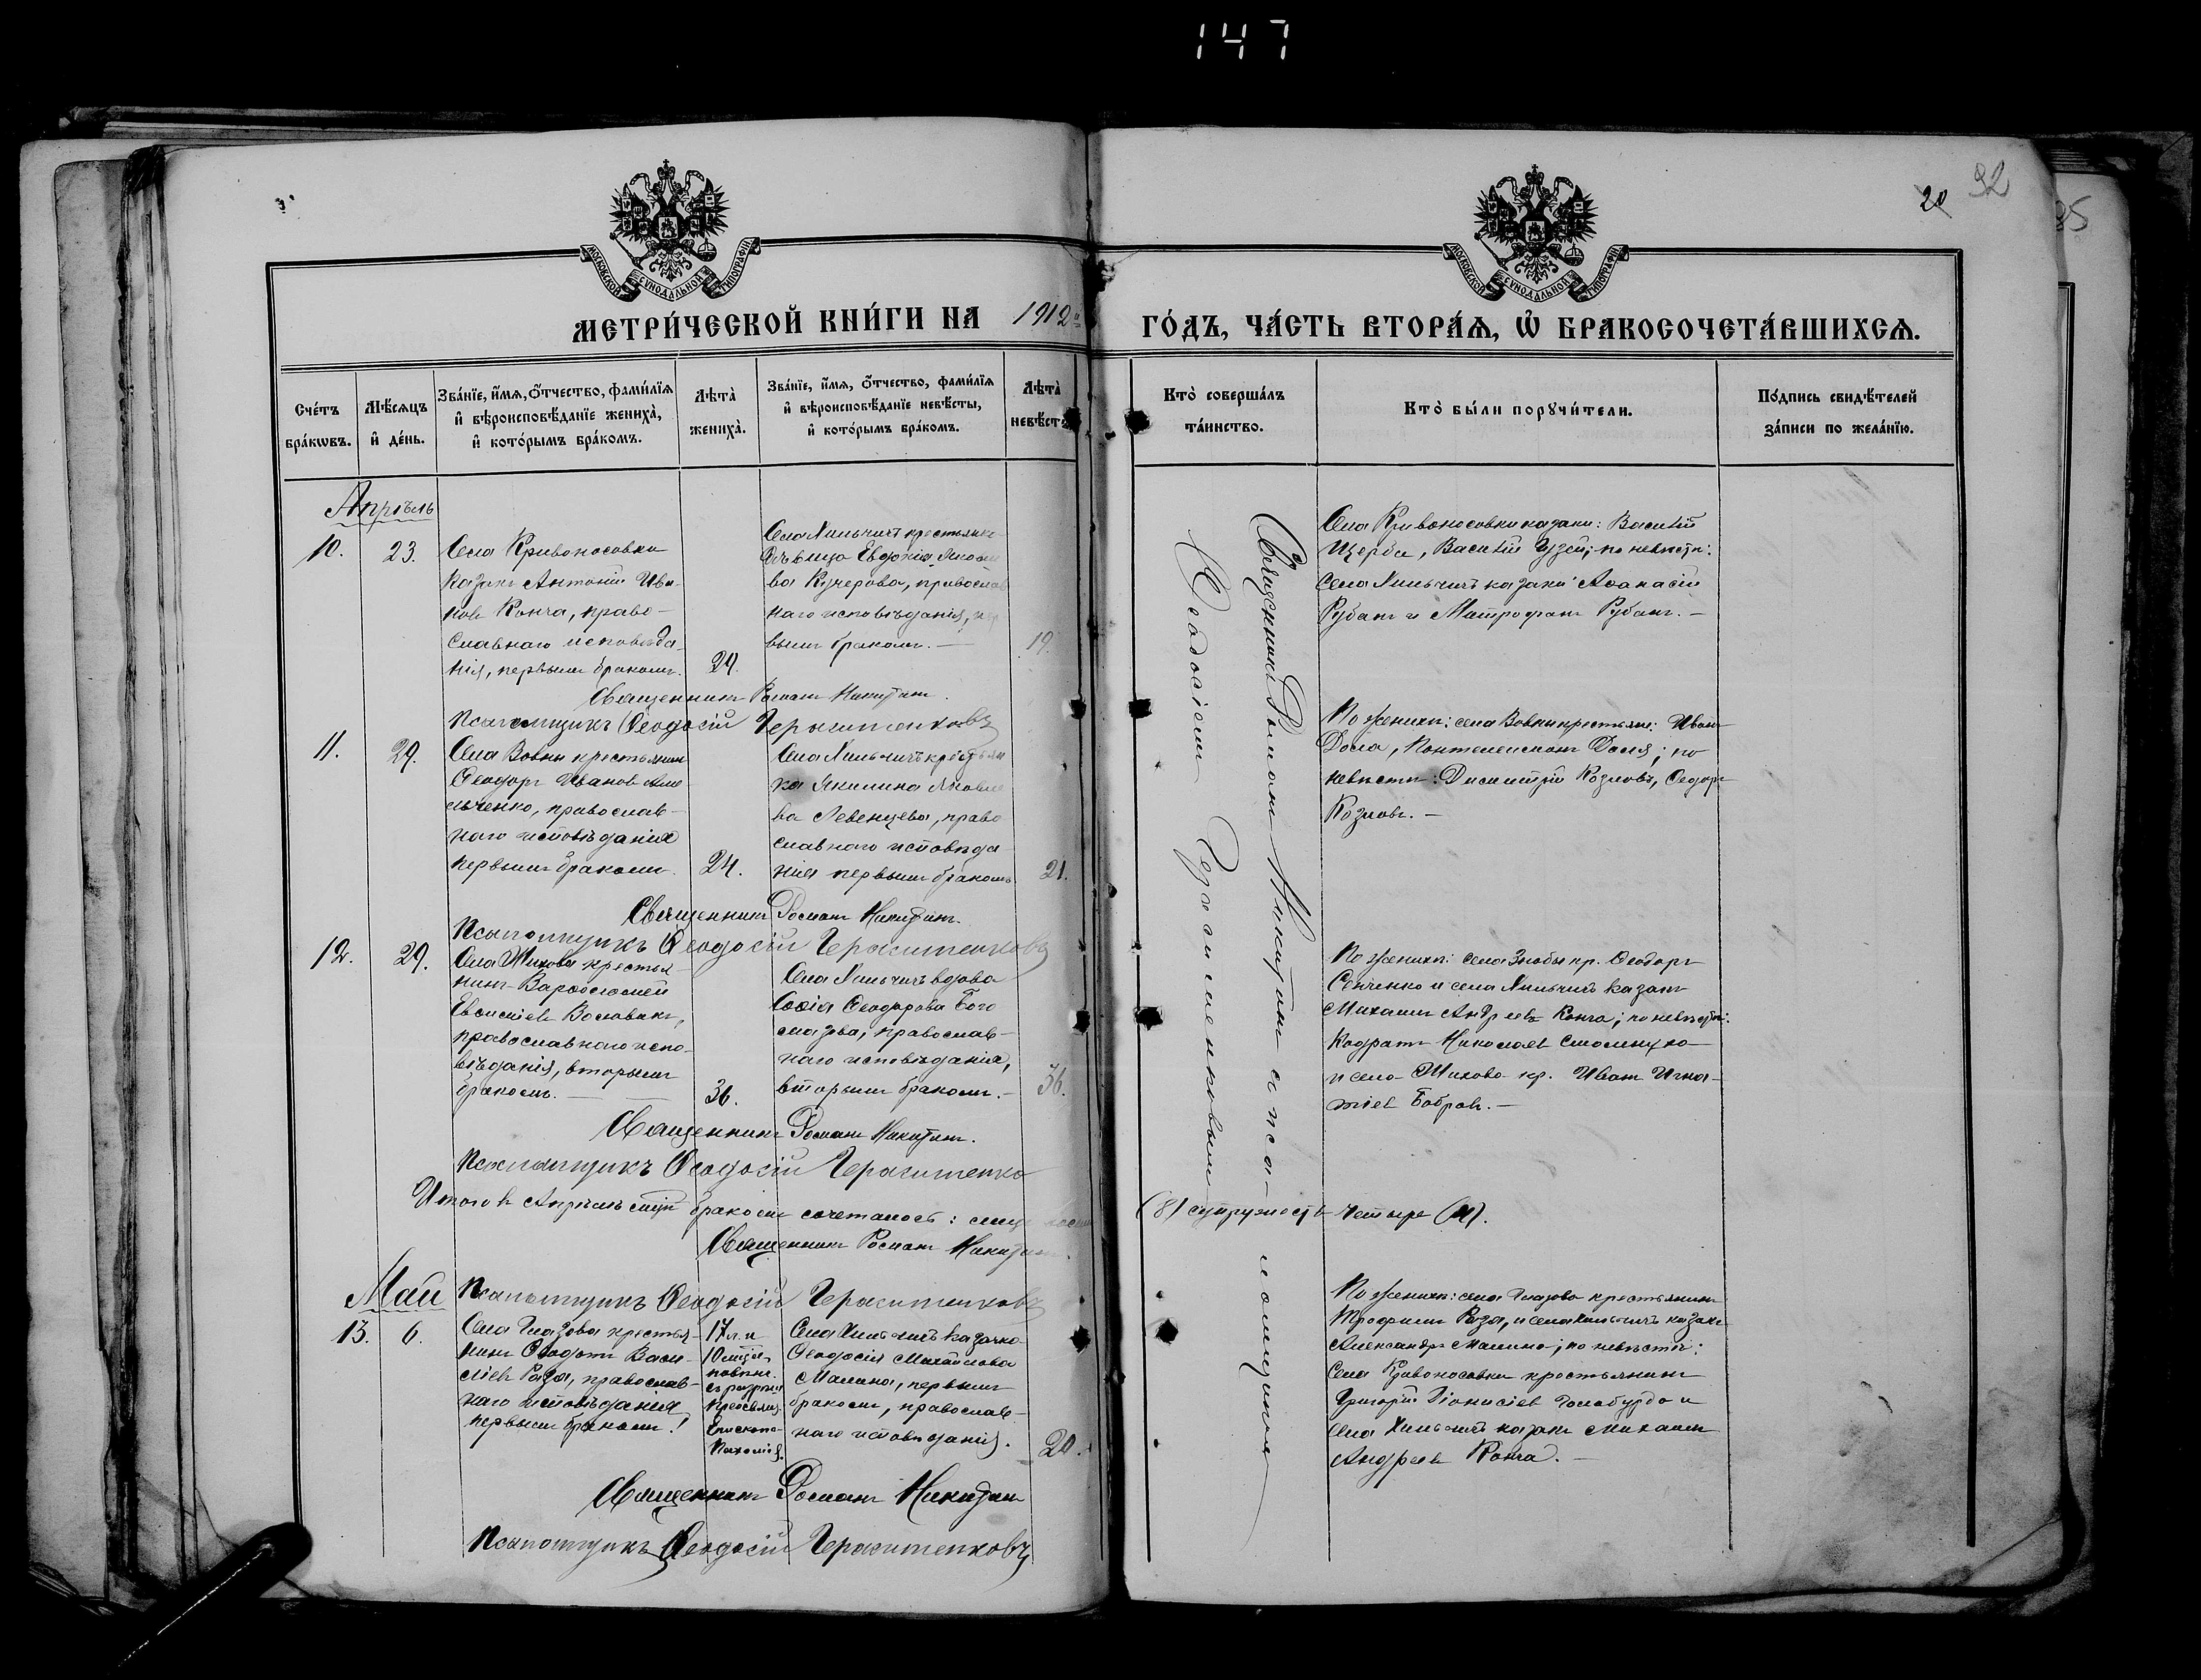 147
20 32
35
МОСКОВСКОЙ СѴНОДАЛЬНОЙ ТИПОГРАФІИ
МОСКОВСКОЙ СѴНОДАЛЬНОЙ ТИПОГРАФІИ
МЕТРИ́ЧЕСКОЙ КНИ́ГИ НА 1912й
ГО́ДЪ, ЧА́СТЬ ВТОРА́Ѧ, Ѽ БРАКОСОЧЕТА́ВШИХСѦ.
Сче́тъ бра́кѡвъ.
Мѣ́сѧцъ и҆ де́нь.
Зва́нїе, и҆́мѧ, ѻ҆́тчество, фами́лїѧ
и҆ вѣроисповѣ́данїе жениха̀,
и҆ кото́рымъ бра́комъ.
Лѣта̀
жениха̀.
Зва́нїе, и҆́мѧ, ѻ҆́тчество, фами́лїѧ
и҆ вѣроисповѣ́данїе невѣ́сты,
и҆ кото́рымъ бра́комъ.
Лѣта̀
невѣ́сты
Кто̀ соверша́лъ
та́инство.
Кто̀ бы́ли порꙋчи́тели.
По́дпись свидѣ́телей
за́писи по жела́нїю.
Апрѣль
10. 23.
Села Кривоносовки
казакъ Антоній Ива-
новъ Конча, право-
славнаго исповѣда-
нія, первымъ бракомъ.
24.
Села Хильчичъ крестьянка
дѣвица Евдокія
ва Кучерова, православ
наго исповѣданія, пер
вымъ бракомъ. —
19.
Села Кривоносовки казаки: Василій
Щерба, Василій по невѣстѣ:
села Хильчичъ казаки Аѳанасій
Рубанъ и Митрофанъ Рубанъ. —
Священникъ Романъ Никитинъ.
Псаломщикъ Ѳеодосій Герасименковъ
11. 29.
Села Вовны крестьянинъ
Ѳеодоръ Ивановъ
ченко, православ-
наго исповѣданія
первымъ бракомъ.
24.
Села Хильчичъ крестьян
ка Акилина Яковле
ва Левенцева, право
славнаго исповѣда
нія первымъ бракомъ
21.
По женихѣ: села Вовны крестьяне: Иванъ
Пантелеимонъ по
невѣстѣ: Димитрій Козловъ, Ѳедоръ
Козловъ. —
Священникъ Романъ Никитинъ.
Псаломщикъ Ѳеодосій Герасименковъ
12. 29.
Села Жихова крестья-
нинъ Варѳоломей
православнаго испо-
вѣданія, вторымъ
бракомъ. —
36.
Села Хильчичъ вдова
Софія Ѳеодорова Бого
мазова, православ-
наго исповѣданія,
вторымъ бракомъ. —
36.
По женихѣ: села Знобы кр. Ѳеодоръ
Сенченко и села Хильчичъ казакъ
Михаилъ Андреевъ Конча; по невѣстѣ:
Кодратъ Николаевъ
и села Жихова кр. Иванъ Игна-
тіевъ Бобровъ. —
Священникъ Романъ Никитинъ.
Псаломщикъ Ѳеодосій Герасименко
Итого въ Апрѣлѣ бракомъ сочеталось:
(8) супружествъ четыре (4).
Священникъ Романъ Никитинъ.
Псаломщикъ Ѳеодосій Герасименковъ
Май
13. 6.
Села Глазова крестья-
нинъ Ѳеодотъ Васи-
ліевъ Раза, православ-
наго исповѣданія
первымъ бракомъ.
17 л. и
10 мѣся-
съ разрѣш
Преосвящ.
Епископа
Пахомія.
Села Хильчичъ казачка
Ѳеодосія Михайлова
Малина, первымъ
бракомъ, православ-
наго исповѣданія.
20.
По женихѣ: села Глазова крестьянинъ
Трофимъ Раза, и села Хильчичъ казакъ
Александръ Малина; по невѣстѣ:
Села Кривоносовки крестьянинъ
Григорій Діонисіевъ и
села Хильчичъ казакъ Михаилъ
Андреевъ Конча. —
Священникъ Романъ Никитинъ
Псаломщикъ Ѳеодосій Герасименковъ
Священникъ Романъ Никитинъ съ псаломщикомъ
Ѳеодосіемъ Герасименковымъ